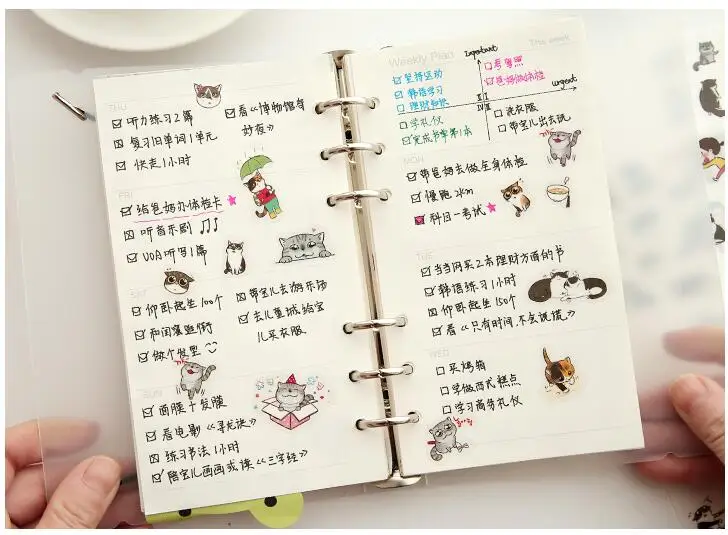 THU
听力练习2篇
复习旧单词1单元
快走1小时
看《博物馆奇
妙夜》
FRI
给爸妈办体检卡
听音乐剧
VOA听写1篇
SAT
仰卧起坐100个
和闺蜜逛街
做个发型
带宝儿去游乐场
去儿童城给宝
儿买衣服
SUN
面膜+发膜
看电影《寻龙诀》
练习书法1小时
陪宝儿画画或读《三字经》
Weekly Plan
This week
Important
坚持运动
韩语学习
理财知识
考驾照
爸妈做体检
Urgent
II I
IV III
学礼仪
完成书单第1本
洗衣服
带宝儿出去玩
MON
带爸妈去做全身体检
慢跑2km
科目一考试
TUE
当当网买2本理财方面的书
韩语练习1小时
仰卧起坐150个
看《只有时间,不会说谎》
WED
买烤箱
学做西式糕点
学习商务礼仪